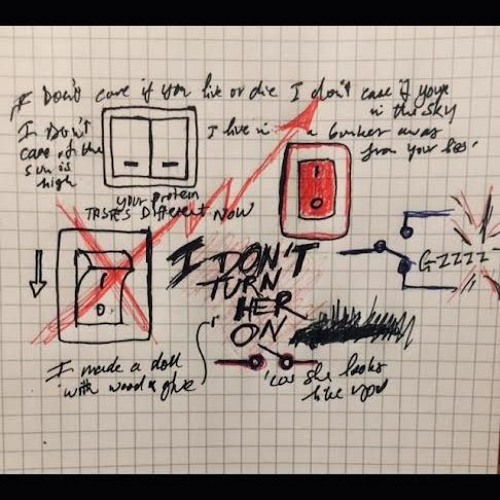 I Don't care if you live or die I don't care if your
in the sky
I Don't
care if the
sun is
high
I live in a bunker away
from your
your protein
TASTES Different NOW
I DON'T
TURN
HER
ON
GZZZZ
I made a doll
with wood & glue
'cus she looks
like you